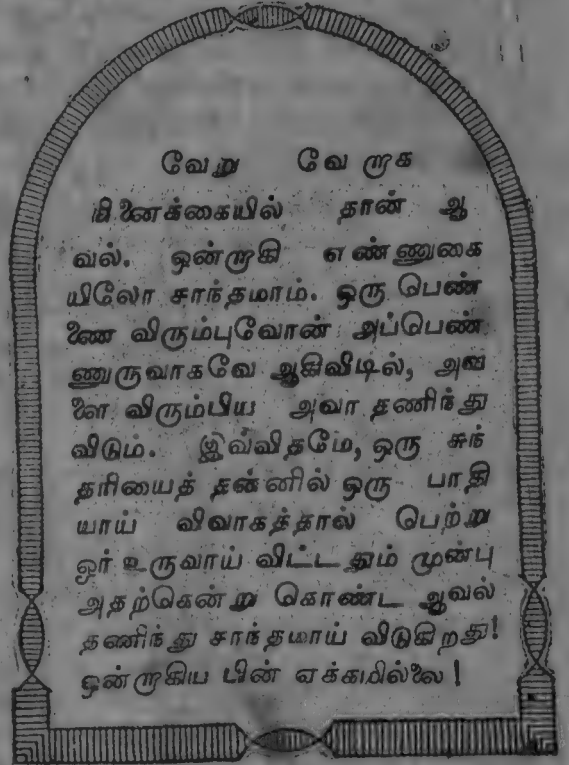 வேறு வேறாக
நினைக்கையில் தான் ஆ
வல். ஒன்றாகி எண்ணுகை
யிலோ சாந்தமாம். ஒரு பெண்
ணை விரும்புவோன் அப்பெண்
ணுருவாகவே ஆகிவிடில், அவ
ளை விரும்பிய அவா தணிந்து
விடும். இவ்விதமே, ஒரு சுந்
தரியைத் தன்னில் ஒரு பாதி
யாய் விவாகத்தால் பெற்று
ஓர் உருவாய் விட்டதும் முன்பு
அதற்கென்று கொண்ட ஆவல்
தணிந்து சாந்தமாய் விடுகிறது!
ஒன்றாகிய பின் ஏக்கமில்லை!